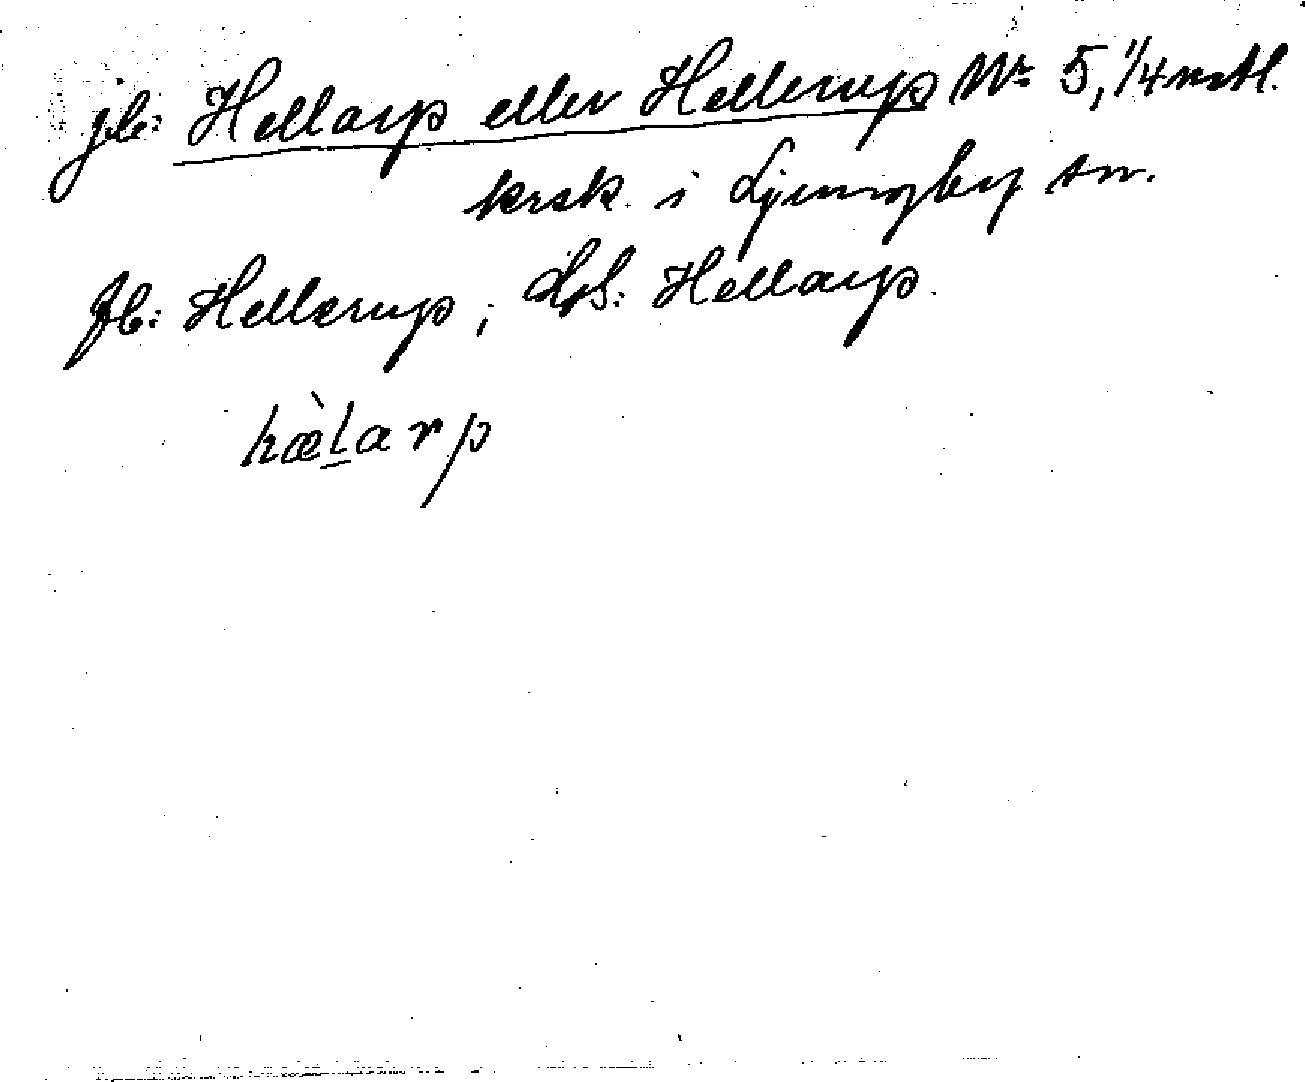 jb: Hellarp eller Hellerup Nr 5, 1/4 mtl.
krsk. i Ljungby sn.
fb: Hellerup; ds: Hellarp.
hæ̀l̲arp